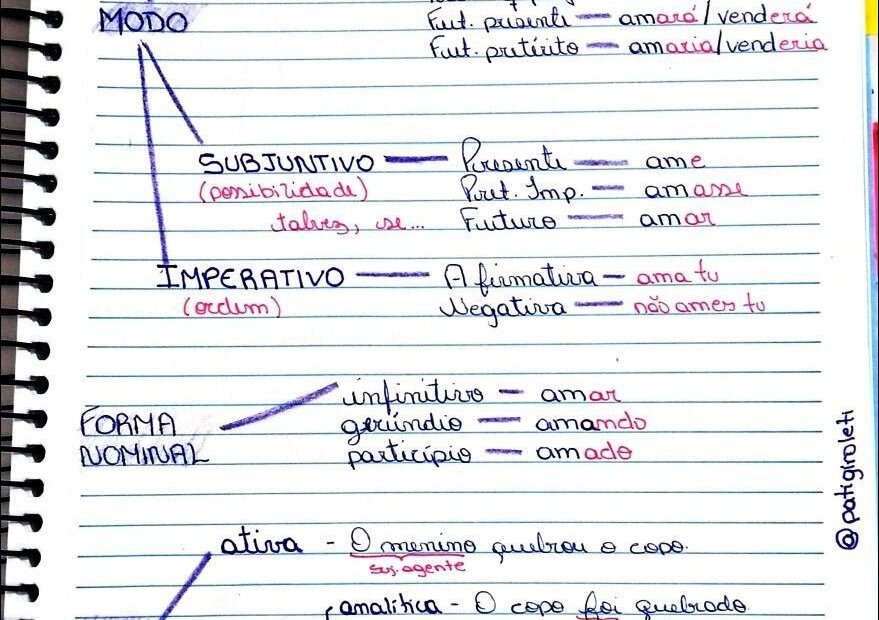 MODO
Fut. presente — amará/venderá
Fut. pretérito — amaria/venderia
SUBJUNTIVO — Presente — ame
(possibilidade) Pret. Imp. — amasse
talvez, se... Futuro — amar
IMPERATIVO — Afirmativa — ama tu
(ordem) Negativa — não ames tu
infinitivo — amar
FORMA gerúndio — amando
NOMINAL particípio — amado
@patigiroleti
ativa - O menino quebrou o copo.
suj. agente
analítica - O copo foi quebrado